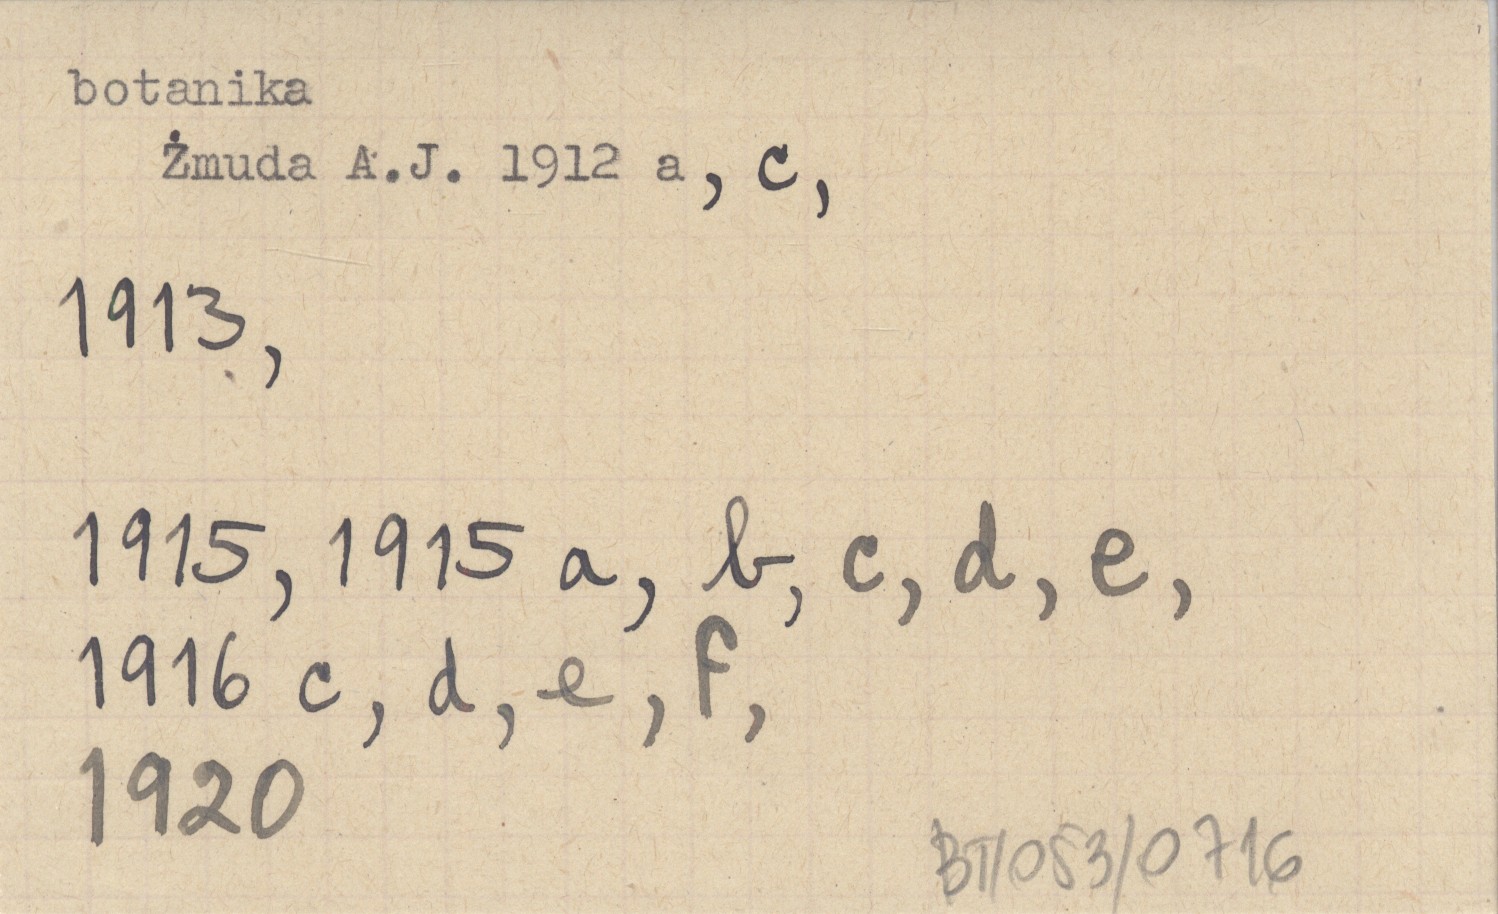 botanika
Żmuda A.J. 1912 a, c,
1913,
1915, 1915 a, b, c, d, e,
1916 c, d, e, f,
1920
BT/053/0716